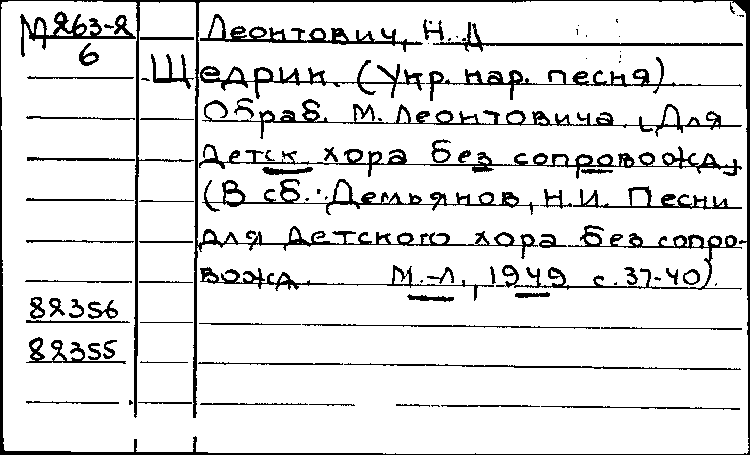 М263-2 Леонтович, Н.Д
6
Щедрик. (Укр. нар. песня).
Обраб. М. Леонтовича. [Для
детск. хора без сопровожд]
(В сб.: Демьянов, Н.И. Песни
для детского хора без сопро-
вожд. М.-Л., 1949. с.37-40).
82356
82355